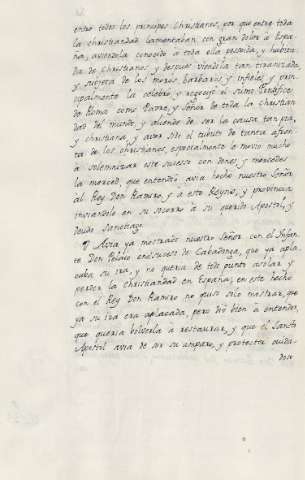 entre todos los principes Christianos, por que entre toda
la christiandad lamentaban con gran dolor a Espa-
ña, aviendola conocido a toda ella poseida, y habita-
da de Christianos, y despues viendola tan tiranizada,
y sujeta de los moros, barbaros, y infieles, y prin-
cipalmente la celebró, y regocijó el sumo Pontifice
de Roma como Padre, y Señor de toda la christian-
dad del mundo, y allende de ser la causa tan pia,
y christiana, y aver sido el tributo de tanta afren-
ta de los christianos, especialmente le movio mucho
a solemnizar este sucesso con dones, y mercedes
la merced, que entendió avia hecho nuestro Señor
al Rey Don Ramiro, y a este Reyno, y provincia
inviandole en su socorro a su querido Apostol, y
deudo Santiago.
Avia ya mostrado nuestro Señor con el Infan-
te Don Pelaio en el sucesso de Cabadonga, que ya apla-
caba su ira, y no queria de todo punto asolar, y
perder la Christiandad en España; en este hecho
con el Rey Don Ramiro no quiso solo mostrar, que
ya su ira era aplacada, pero dió bien a entender,
que queria bolverla a restaurar, y que el Santo
Apostol avia de ser su amparo, y protector cuida-
doso